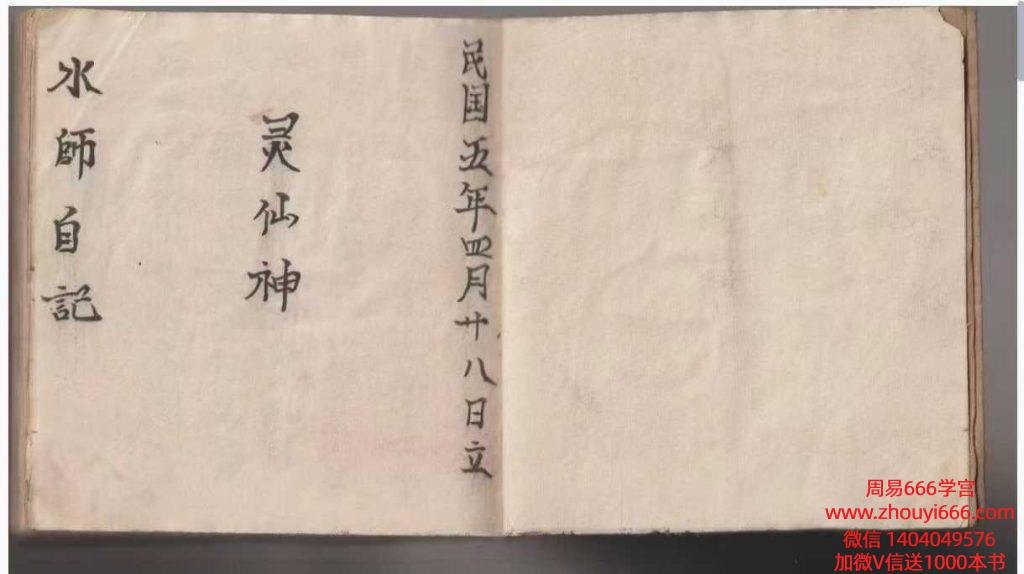 民国五年四月廿八日立
灵仙神
水師自記
周易666学宫
www.zhouyi666.com
微信 1404049576
加微V信送1000本书